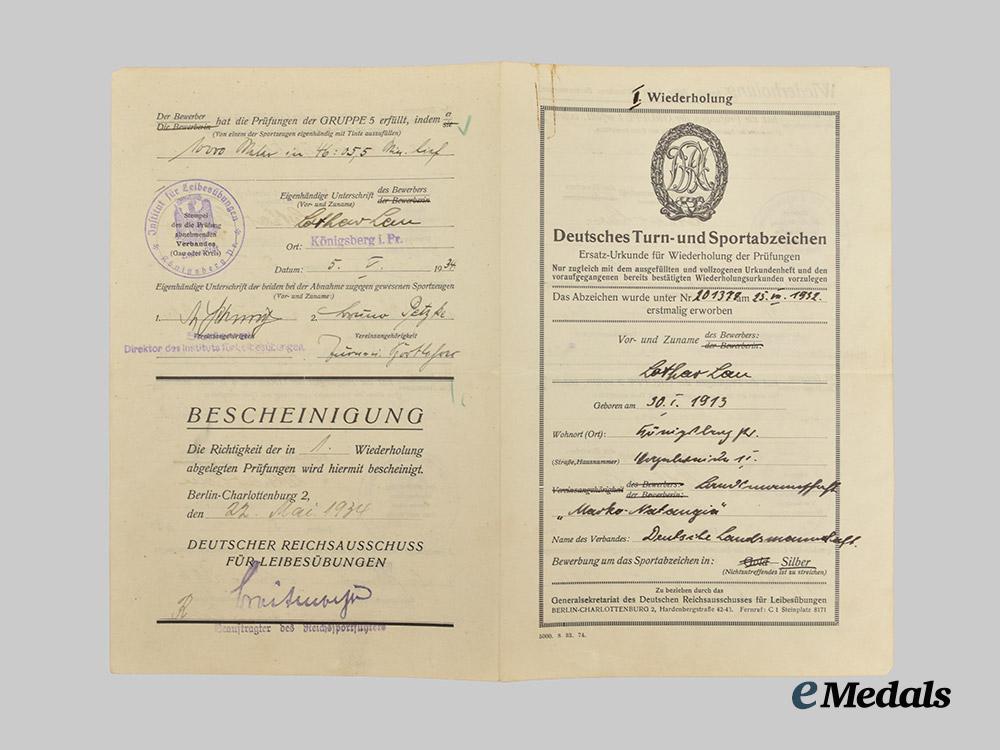 Der Bewerber
Die Bewerberin hat die Prüfungen der GRUPPE 5 erfüllt, indem er
sie
(Von einem der Sportzeugen eigenhändig mit Tinte auszufüllen)
10000 Meter in 46:05,5 Min. lief
Institut für Leibesübungen
Königsberg Pr.
Stempel
des die Prüfung
abnehmenden
Verbandes
(Gau oder Kreis)
Eigenhändige Unterschrift des Bewerbers
(Vor- und Zuname) der Bewerberin
Lothar Lau
Ort: Königsberg i. Pr.
Datum: 5. V. 1934
Eigenhändige Unterschrift der beiden bei der Abnahme zugegen gewesenen Sportzeugen
(Vor- und Zuname:)
1. 2. Bruno Petzke
Vereinsangehörigkeit Vereinsangehörigkeit
Direktor des Instituts für Leibesübungen.
BESCHEINIGUNG
Die Richtigkeit der in 1. Wiederholung
abgelegten Prüfungen wird hiermit bescheinigt.
Berlin-Charlottenburg 2,
den 22. Mai 1934
DEUTSCHER REICHSAUSSCHUSS
FÜR LEIBESÜBUNGEN
R
Beauftragter des Reichssportführers
I. Wiederholung
DRA
Deutsches Turn- und Sportabzeichen
Ersatz-Urkunde für Wiederholung der Prüfungen
Nur zugleich mit dem ausgefüllten und vollzogenen Urkundenheft und den
voraufgegangenen bereits bestätigten Wiederholungsurkunden vorzulegen
Das Abzeichen wurde unter Nr 201378 am 25. VII. 1932
erstmalig erworben
Vor- und Zuname des Bewerbers:
der Bewerberin:
Lothar Lau
Geboren am 30. I. 1913
Wohnort (Ort): Königsberg Pr.
(Straße, Hausnummer)
Vereinsangehörigkeit des Bewerbers: Landsmannschaft
der Bewerberin:
„Marko-Natangia"
Name des Verbandes: Deutsche Landsmannschaft.
Bewerbung um das Sportabzeichen in: Gold Silber
(Nichtzutreffendes ist zu streichen)
Zu beziehen durch das
Generalsekretariat des Deutschen Reichsausschusses für Leibesübungen
BERLIN-CHARLOTTENBURG 2, Hardenbergstraße 42-43. Fernruf: C 1 Steinplatz 8171
5000. 8. 33. 74.
eMedals